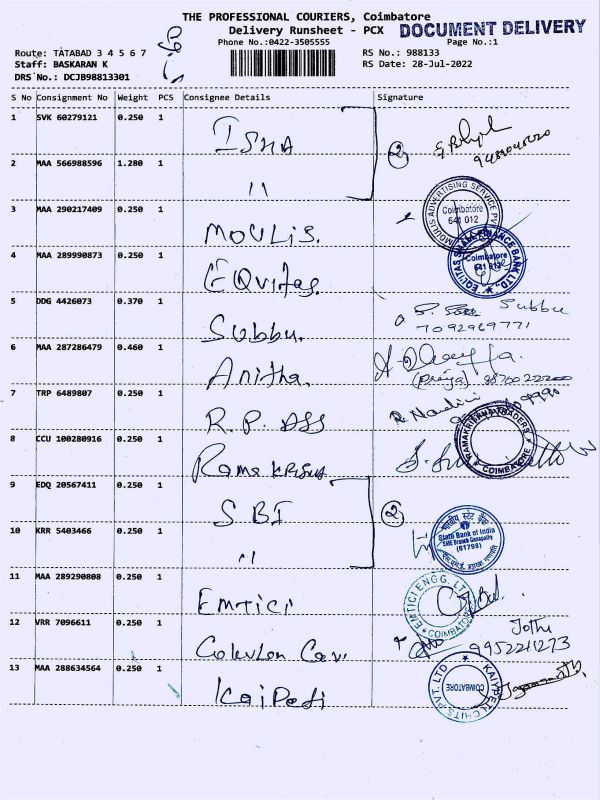 THE PROFESSIONAL COURIERS, Coimbatore
Delivery Runsheet - PCX DOCUMENT DELIVERY
Phone No.:0422-3505555 Page No.:1
Route: TATABAD 3 4 5 6 7 RS No.: 988133
Staff: BASKARAN K RS Date: 28-Jul-2022
DRS No.: DCJB98813301
S No Consignment No Weight PCS Consignee Details Signature
1 SVK 60279121 0.250 1 ISHA 2
2 MAA 566988596 1.280 1 "
3 MAA 290217409 0.250 1 MOULIS. MOULIS ADVERTISING SERVICE Coimbatore 641 012
4 MAA 289990873 0.250 1 EQvitas. EQUITAS SMALL FINANCE BANK LTD. Coimbatore 641 012
5 DDG 4426073 0.370 1 Subbu. Subbu
7092969771
6 MAA 287286479 0.460 1 Anitha. (Priya)
7 TRP 6489807 0.250 1 R.P. R. Nandini
8 CCU 100280916 0.250 1 Rama KRISHNA RAMAKRISHNA TRADERS COIMBATORE
9 EDQ 20567411 0.250 1 SBI 2
10 KRR 5403466 0.250 1 " State Bank of India SME Branch Ganapathy (61798)
11 MAA 289290808 0.250 1 EMTICI EMTICI ENGG. LTD COIMBATORE
12 VRR 7096611 0.250 1 Jothi
9952211273
13 MAA 288634564 0.250 1 KAIYPETI CHITS PVT. LTD COIMBATORE